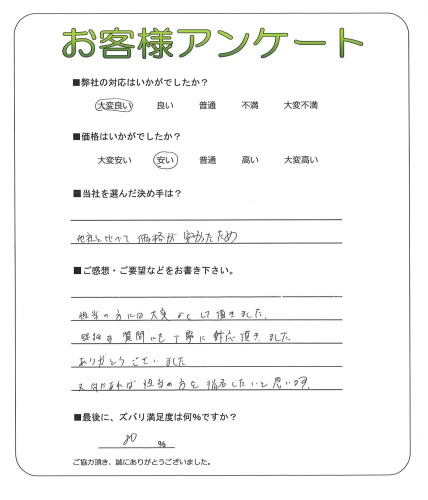 お客様アンケート
■弊社の対応はいかがでしたか?
大変良い 良い 普通 不満 大変不満
■価格はいかがでしたか?
大変安い 安い 普通 高い 大変高い
■当社を選んだ決め手は?
他社と比べて 価格が 安かったため
■ご感想・ご要望などをお書き下さい。
担当の方には大変 よくして頂きました。
質問にも丁寧に 対応頂きました
ありがとうございました
又 何かあれば 担当の方を 指名したいと思います。
■最後に、ズバリ満足度は何%ですか?
%
ご協力頂き、誠にありがとうございました。